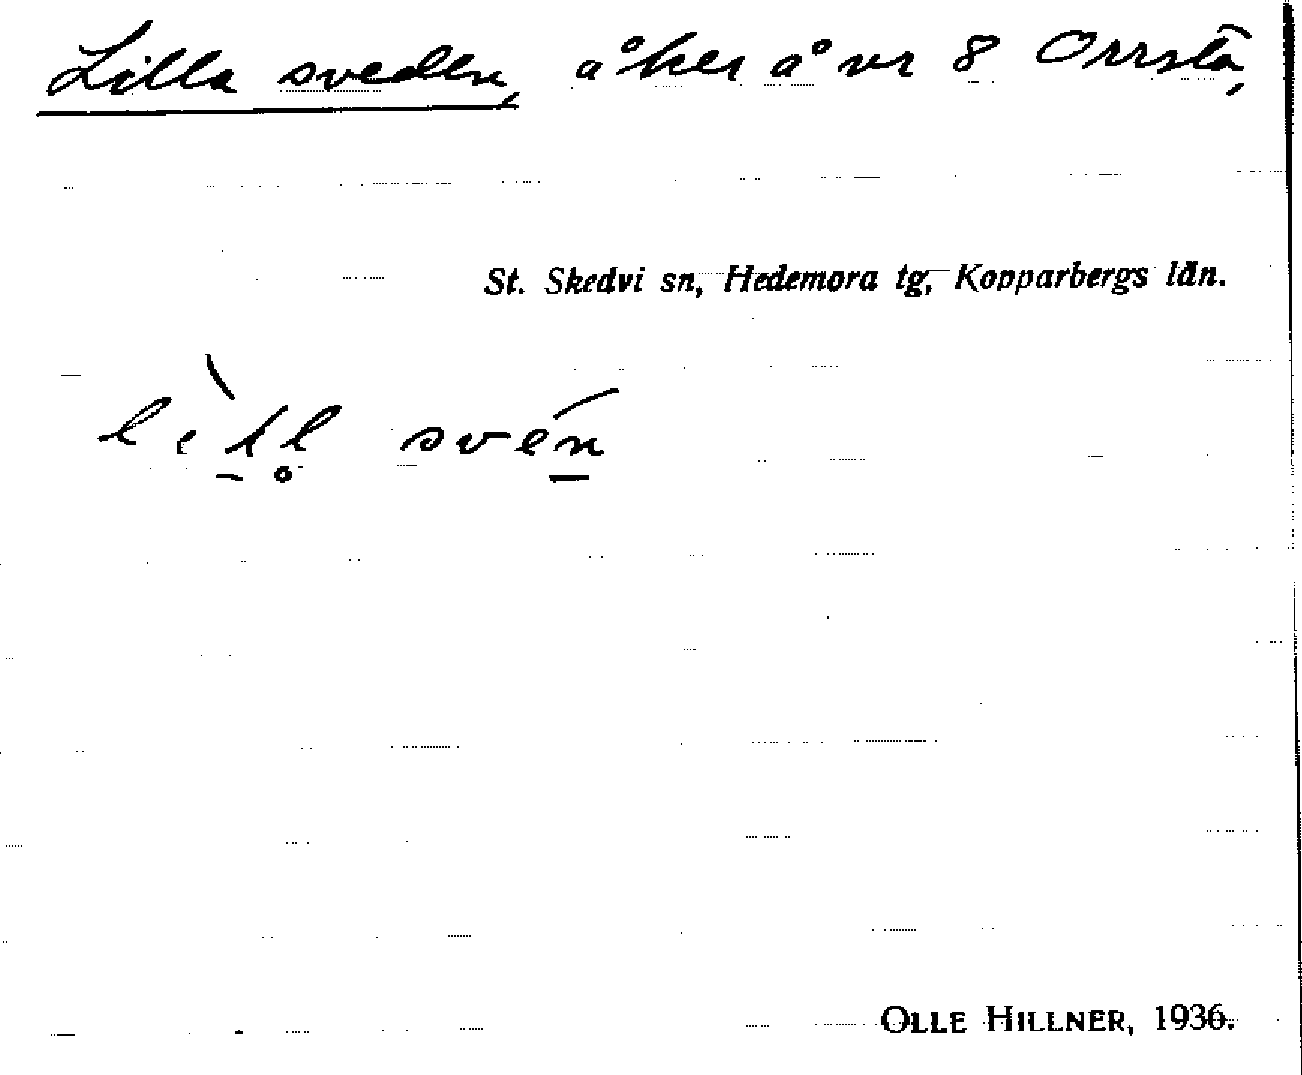 Lilla sveden, åker å nr 8 Orrsta,
St. Skedvi sn, Hedemora tg, Kopparbergs län.
OLLE HILLNER, 1936.